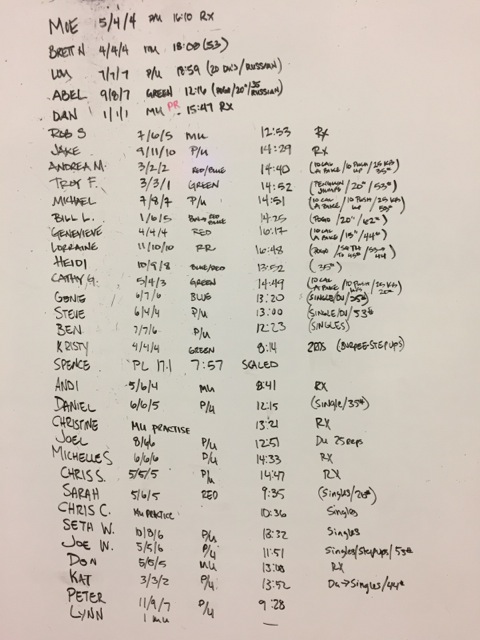 MOE 5/4/4 MU 16:10 RX
BRETT N 4/4/4 MU 18:08 (53)
7/7/7 P/U 18:59 (20 DU'S/RUSSIAN)
ABEL 9/8/7 GREEN 12:16 (POGO/20"/35 RUSSIAN)
DAN 1/1/1 MU PR 15:47 RX
ROB S 7/6/5 MU 12:53 RX
JAKE 9/11/10 P/U 14:29 RX
ANDREA M. 3/2/2 RED/BLUE 14:40 (10 CAL A. BIKE/10 PUSH UP/25 KBS 35#)
TROY F. 3/3/1 GREEN 14:52 (PENGUIN JUMPS/20"/53#)
MICHAEL 7/8/7 P/U 14:51 (10 CAL A. BIKE/10 PUSH/25 KBS 53#)
BILL L. 1/6/5 RED BLUE 14:25 (POGO/20"/62#)
GENEVIEVE 4/4/4 RED 16:17 (10 CAL A. BIKE/15"/44#)
LORRAINE 11/10/10 RR 16:48 44
HEIDI 10/9/8 BLUE/RED 13:52 (35#)
CATHY G. 5/4/3 GREEN 14:49 (10 CAL A. BIKE/10 PUSH UPS/25 KBS
GENIE 6/7/6 BLUE 13:20 (SINGLE/DU/35#)
STEVE 6/4/4 P/U 13:00 (SINGLE/DU/53#
BEN 7/7/6 P/U 12:23 (SINGLES)
KRISTY 4/4/4 GREEN 8:14 2RDS (BURPEE-STEP UPS)
SPENCE PL 17.1 7:57 SCALED
ANDI 5/6/4 MU 8:41 RX
DANIEL 6/6/5 P/U 12:15 (Single/35#)
CHRISTINE MU PRACTISE 13:21 RX
JOEL 8/6/6 P/U 12:51 Du 25 reps
MICHELLE S 6/6/6 P/U 14:33 RX
CHRIS S. 5/5/5 P/U 14:47 RX
SARAH 5/6/5 RED 9:35 (Singles/26#)
CHRIS C. MU PRACTICE 10:36 Singles
SETH W. 10/8/6 P/U 13:32 Singles
JOE W. 5/5/6 P/U 11:51 Singles/Stepups/53#
DON 5/5/5 MU 13:08 RX
KAT 3/3/2 P/U 13:52 Du→Singles/44#
PETER 11/9/7 P/U 9:28
LYNN 1 MU —